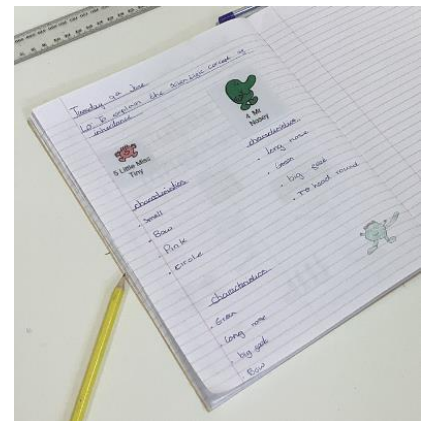 Tuesday 9th June
LO: To explain the scientific concept of
inheritance
5 Little Miss
Tiny
characteristics
· Small
· Bow
· Pink
· Circle
4 Mr
Nosey
characteristics
· long nose
· Green
· big
· head round
characteristics
· Green
· long nose
· big
· Bow